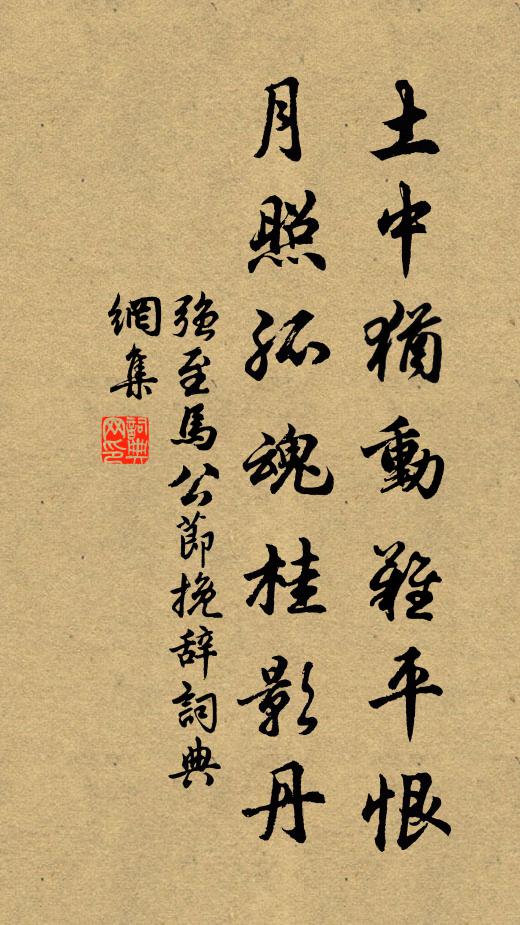 土中猶動難平恨
月照孤魂桂影丹
強至馬公節挽辞詞典
網集
詞典
网印